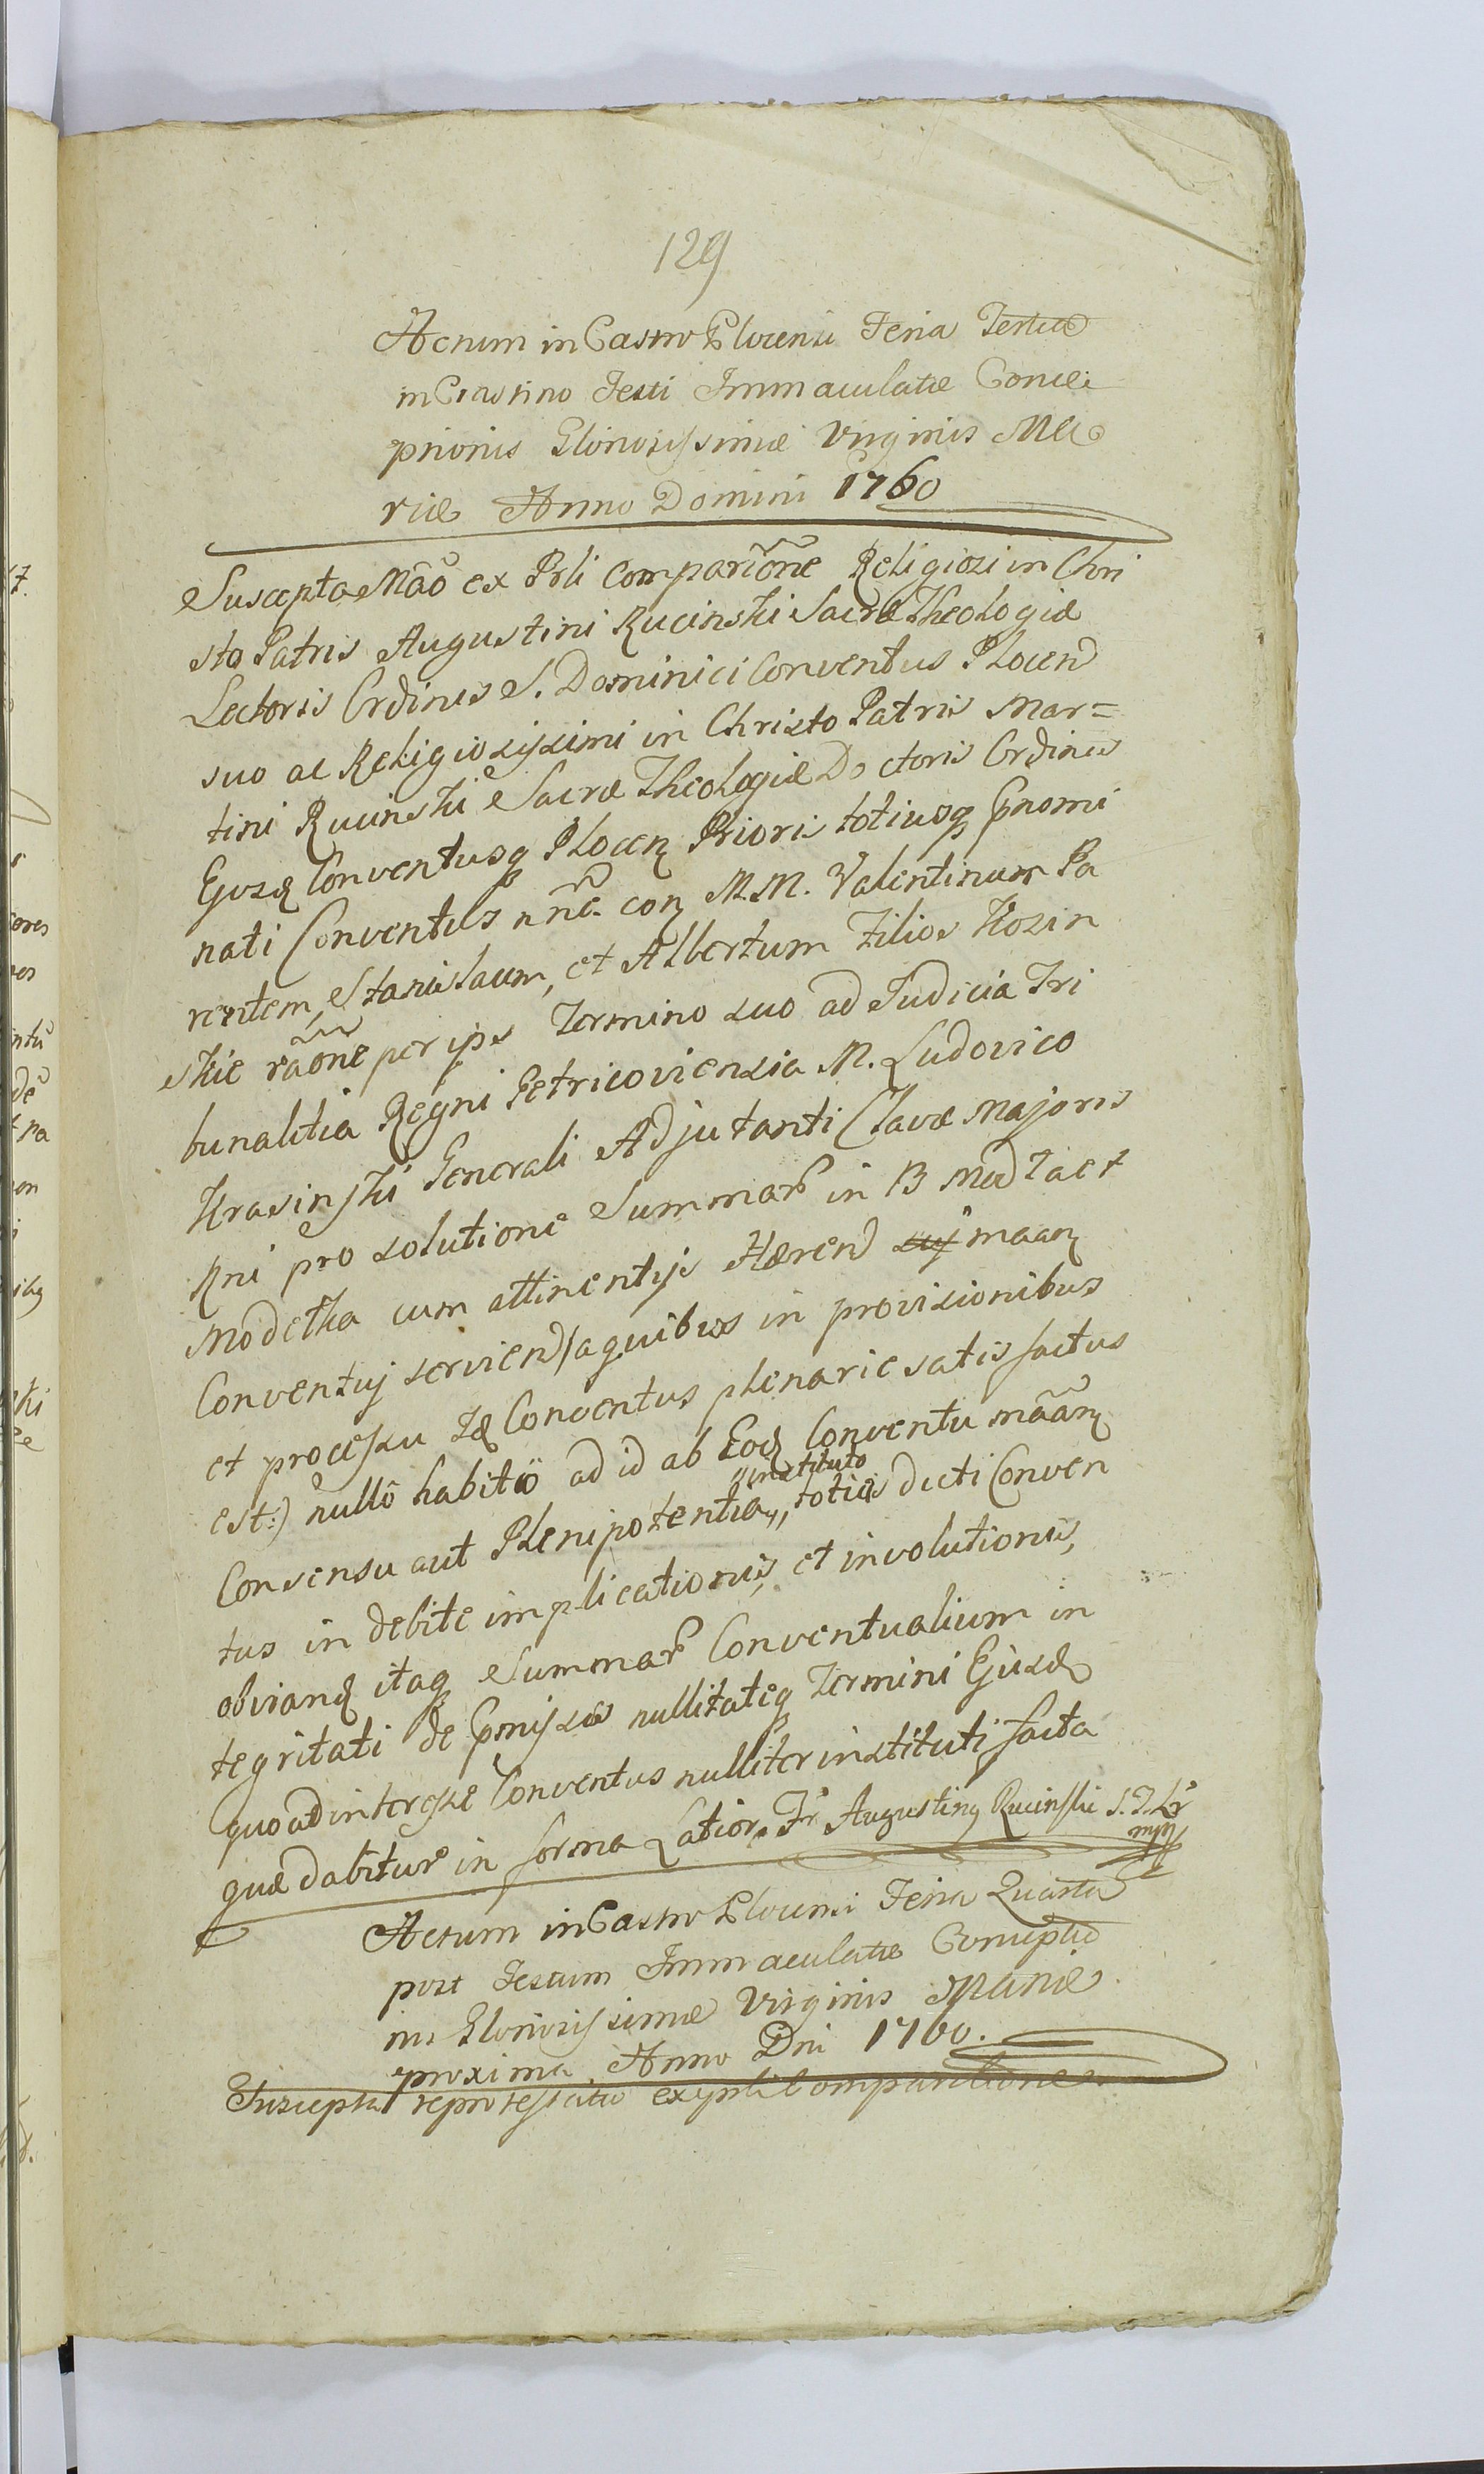 129
Actum in Castro Plocensi Feria Tertia
in Crastino Festi Immaculatæ Conce
ptionis Gloriosissimæ Virginis Ma
riæ Anno Domini 1760
Suscepta Mãō ex Prli Compariõne Religiosi in Chri
sto Patris Augustini Rucinski Sacræ Theologiæ
Lectoris Ordinis S. Dominici Conventus Plocen
suo ac Religiosissimi in Christo Patris Mar=
tini Rucinski Sacræ Theologiæ Doctoris Ordinis
Ejusd Conventusq Plocen Prioris totiusq Prnomi
nati Conventus nñe con M.M. Valentinum Pa
rentem, Stanislaum, et Albertum Filios Kozin
skie rãõne per ips Termino suo ad Judicia Tri
bunalitia Regni Petricoviensia M. Ludovico
Krasinski Generali Adjutanti Clavæ Majoris
Rni pro solutione Summar in B Mod Taet
Modetka cum attinentijs Hæren maan
Conventuj servien (a quibus in provisionibus
et processu Conventus plenarie satisfactus
est:) nullô habitô ad id ab Eod Conventu mãan
Consensu aut Plenipotentia,, totiq dicti Conven
,,instituto
tus in debite implicationis, et involutionis,
obviand itaq Summar Conventualium in
tegritati de Pmissis nullitateq Termini Ejusd
quoad interesse Conventus nulliter instituti facta
quæ dabitur in forma Latior. Fr Augustinq Rucinski S.T.Lr
mpp
Actum in Castro Plocensi Feria Quarta
post Festum Immaculatæ Conceptio
nis Gloriosissimæ Virginis Mariæ
proxima Anno Dni 1760.
Suscepta reprotestatio ex prli Comparitione